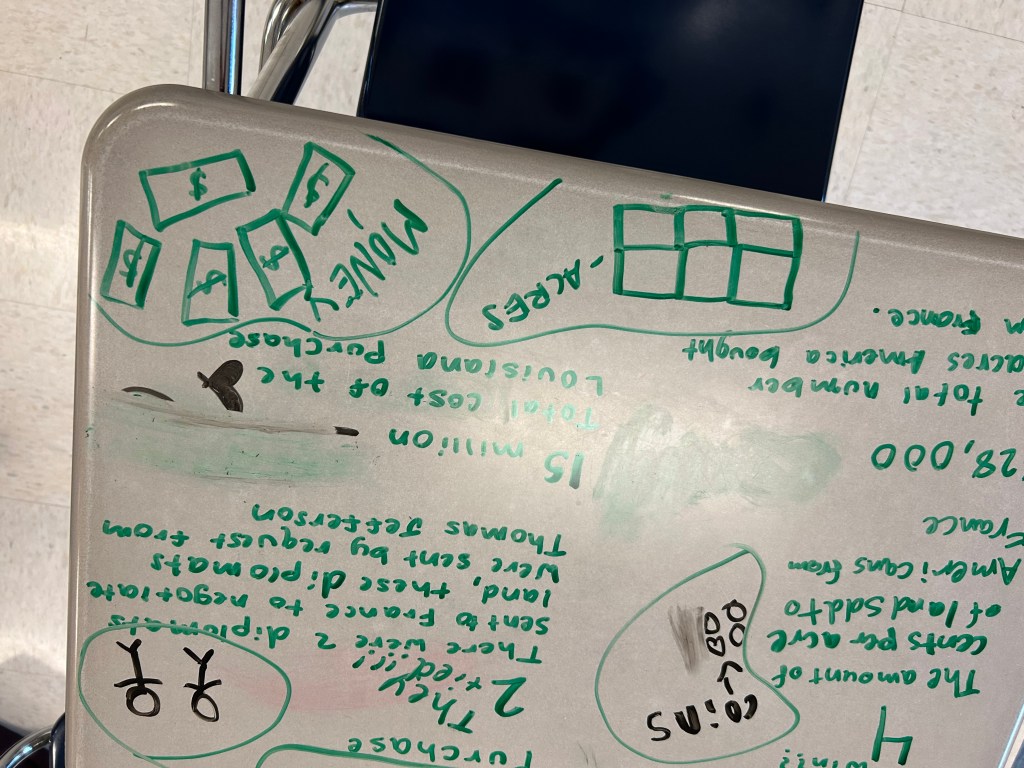 4
The amount of
cents per acre
of land Sold to
Americans from
France
28,000
total number
acres America bought
France.
coins
- ACRES
Purchase
2 They
tried!!!
There were 2 diplomats
sent to France to negotiate
land, these diplomats
were sent by request from
Thomas Jefferson
15 million
Total cost of the
Louisiana Purchase
MONEY
$
$
$
$
$